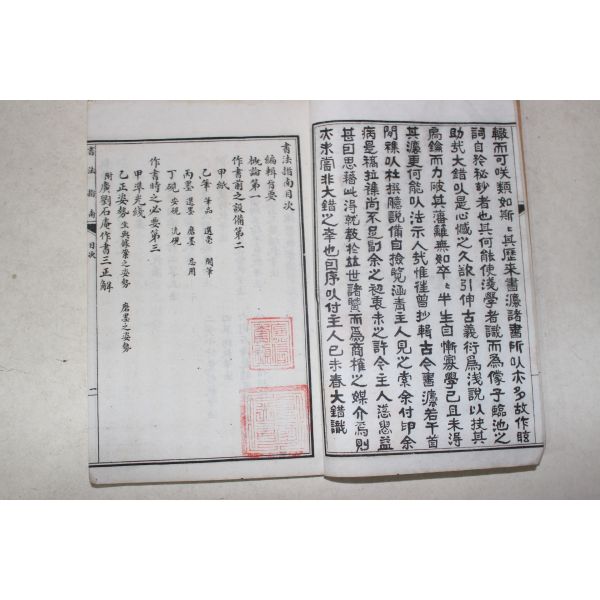 轍而可咲類如斯〻其歷來書灋諸書所㠯亦多故作眩
詞自矜秘鈔者也其何能使淺學者識而爲像子臨池之
助哉大錯㠯是心憾之久欲引伸古義衍爲淺說以抉其
爲鑰而力破其藩籬無如卒〻半生自慚寡學己且未得
其灋更何能㠯灋示人哉惟徃曾抄輯古今書灋若干首
間襍㠯杜撰臆說備自撿覽涵齋主人見之索余付印余
病是稿拉襍尚不足副余之初衷未之許今主人慫恿益
甚因思藉此得就教於並世諸賢而爲商榷之媒介焉則
亦未嘗非大錯之幸也因序㠯付主人己未春大錯識
書法指南目次
編輯旨要
概論第一
作書前之設備第二
甲紙
乙筆 筆品 選毫 開筆
丙墨 選墨 磨墨 忌用
丁硯 安硯 洗硯
作書時之必要第三
甲準光線
乙正姿勢 生與據案之姿勢 磨墨之姿勢
附廣劉石庵作書三正解
書法指南 目次 一